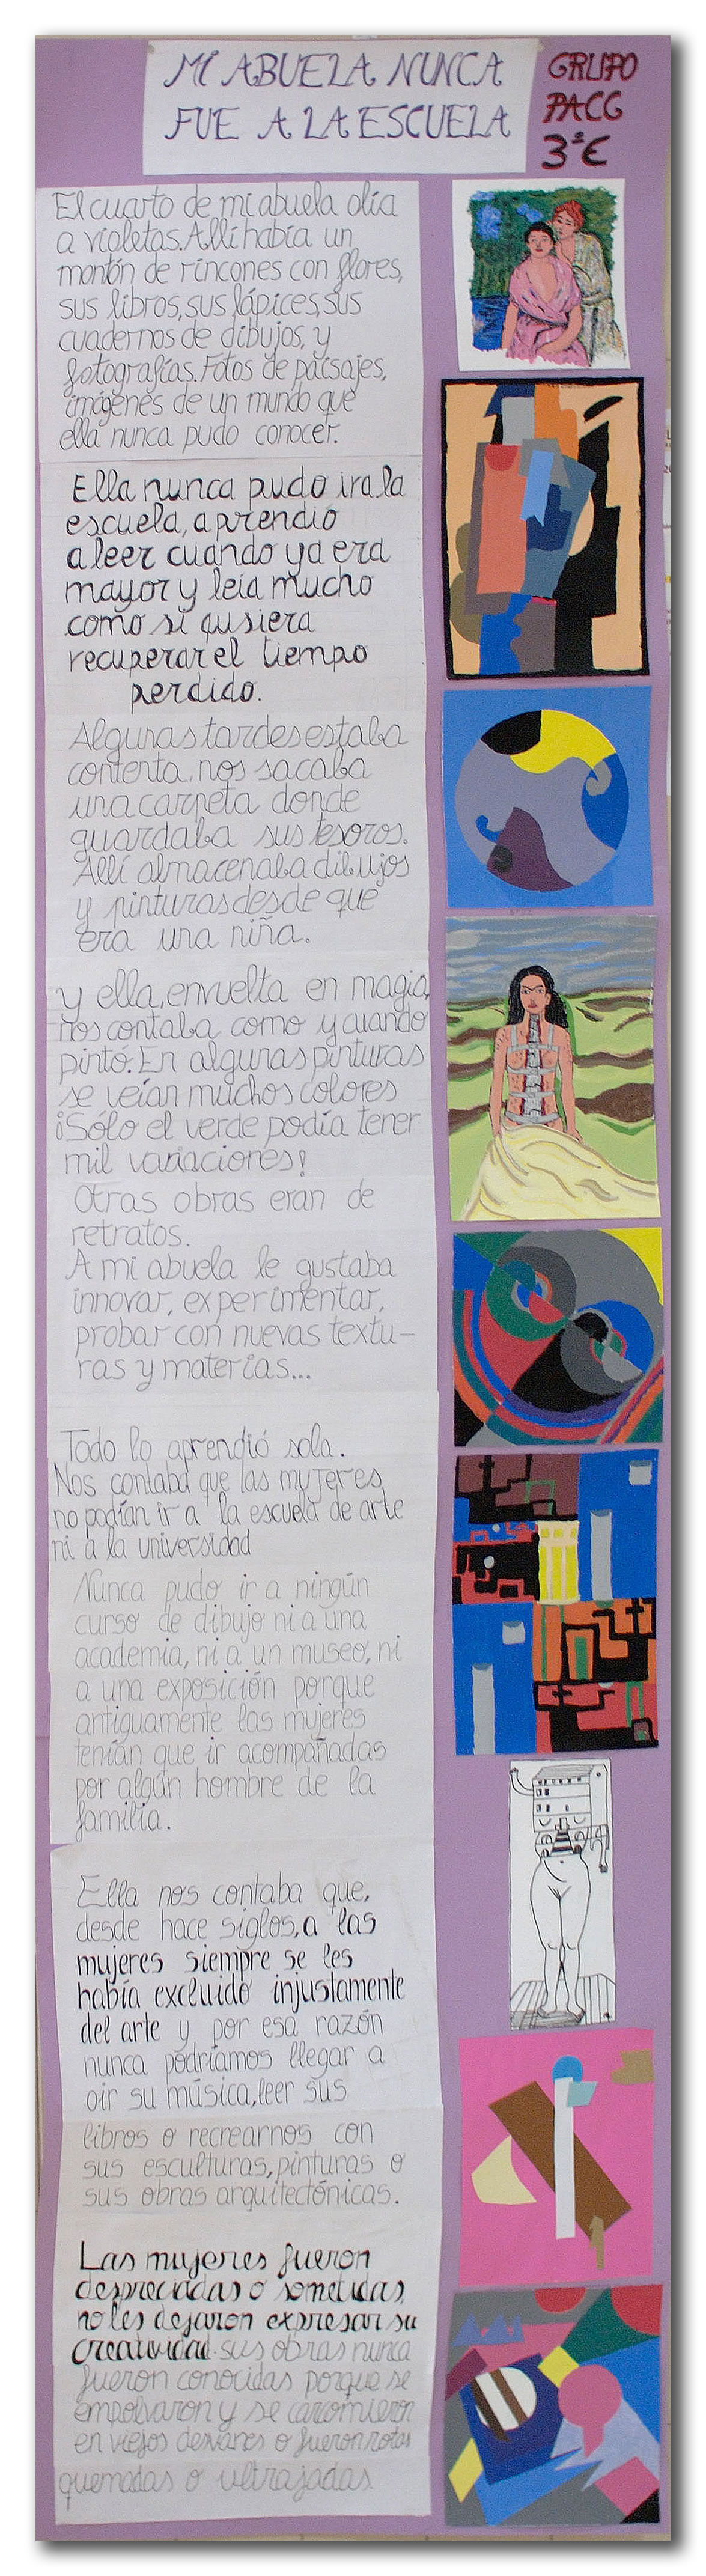 MI ABUELA NUNCA
FUE A LA ESCUELA
GRUPO
PACG
3ºE
El cuarto de mi abuela olía
a violetas. Allí había un
montón de rincones con flores,
sus libros, sus lápices, sus
cuadernos de dibujos, y
fotografías. Fotos de paisajes,
imágenes de un mundo que
ella nunca pudo conocer.
Ella nunca pudo ir a la
escuela, aprendio
a leer cuando ya era
mayor y leía mucho
como si qusiera
recuperar el tiempo
perdido.
Algunas tardes estaba
contenta, nos sacaba
una carpeta donde
guardaba sus tesoros.
Allí almacenaba dibujos
y pinturas desde que
era una niña.
y ella, envuelta en magia,
nos contaba como y cuando
pintó. En algunas pinturas
se veían muchos colores
¡Sólo el verde podía tener
mil variaciones!
Otras obras eran de
retratos.
A mi abuela le gustaba
innovar, experimentar,
probar con nuevas textu-
ras y materias...
Todo lo aprendió sola.
Nos contaba que las mujeres
no podían ir a la escuela de arte
ni a la universidad
Nunca pudo ir a ningún
curso de dibujo ni a una
academia, ni a un museo, ni
a una exposición porque
antiguamente las mujeres
tenían que ir acompañadas
por algún hombre de la
familia.
Ella nos contaba que,
desde hace siglos, a las
mujeres siempre se les
había excluido injustamente
del arte y por esa razón
nunca podríamos llegar a
oir su música, leer sus
libros o recrearnos con
sus esculturas, pinturas o
sus obras arquitectónicas.
Las mujeres fueron
despreciadas o sometidas,
no les dejaron expresar su
creatividad. sus obras nunca
fueron conocidas porque se
empolvaron y se carcomieron
en viejos desvanes o fueron rotas
quemadas o ultrajadas.